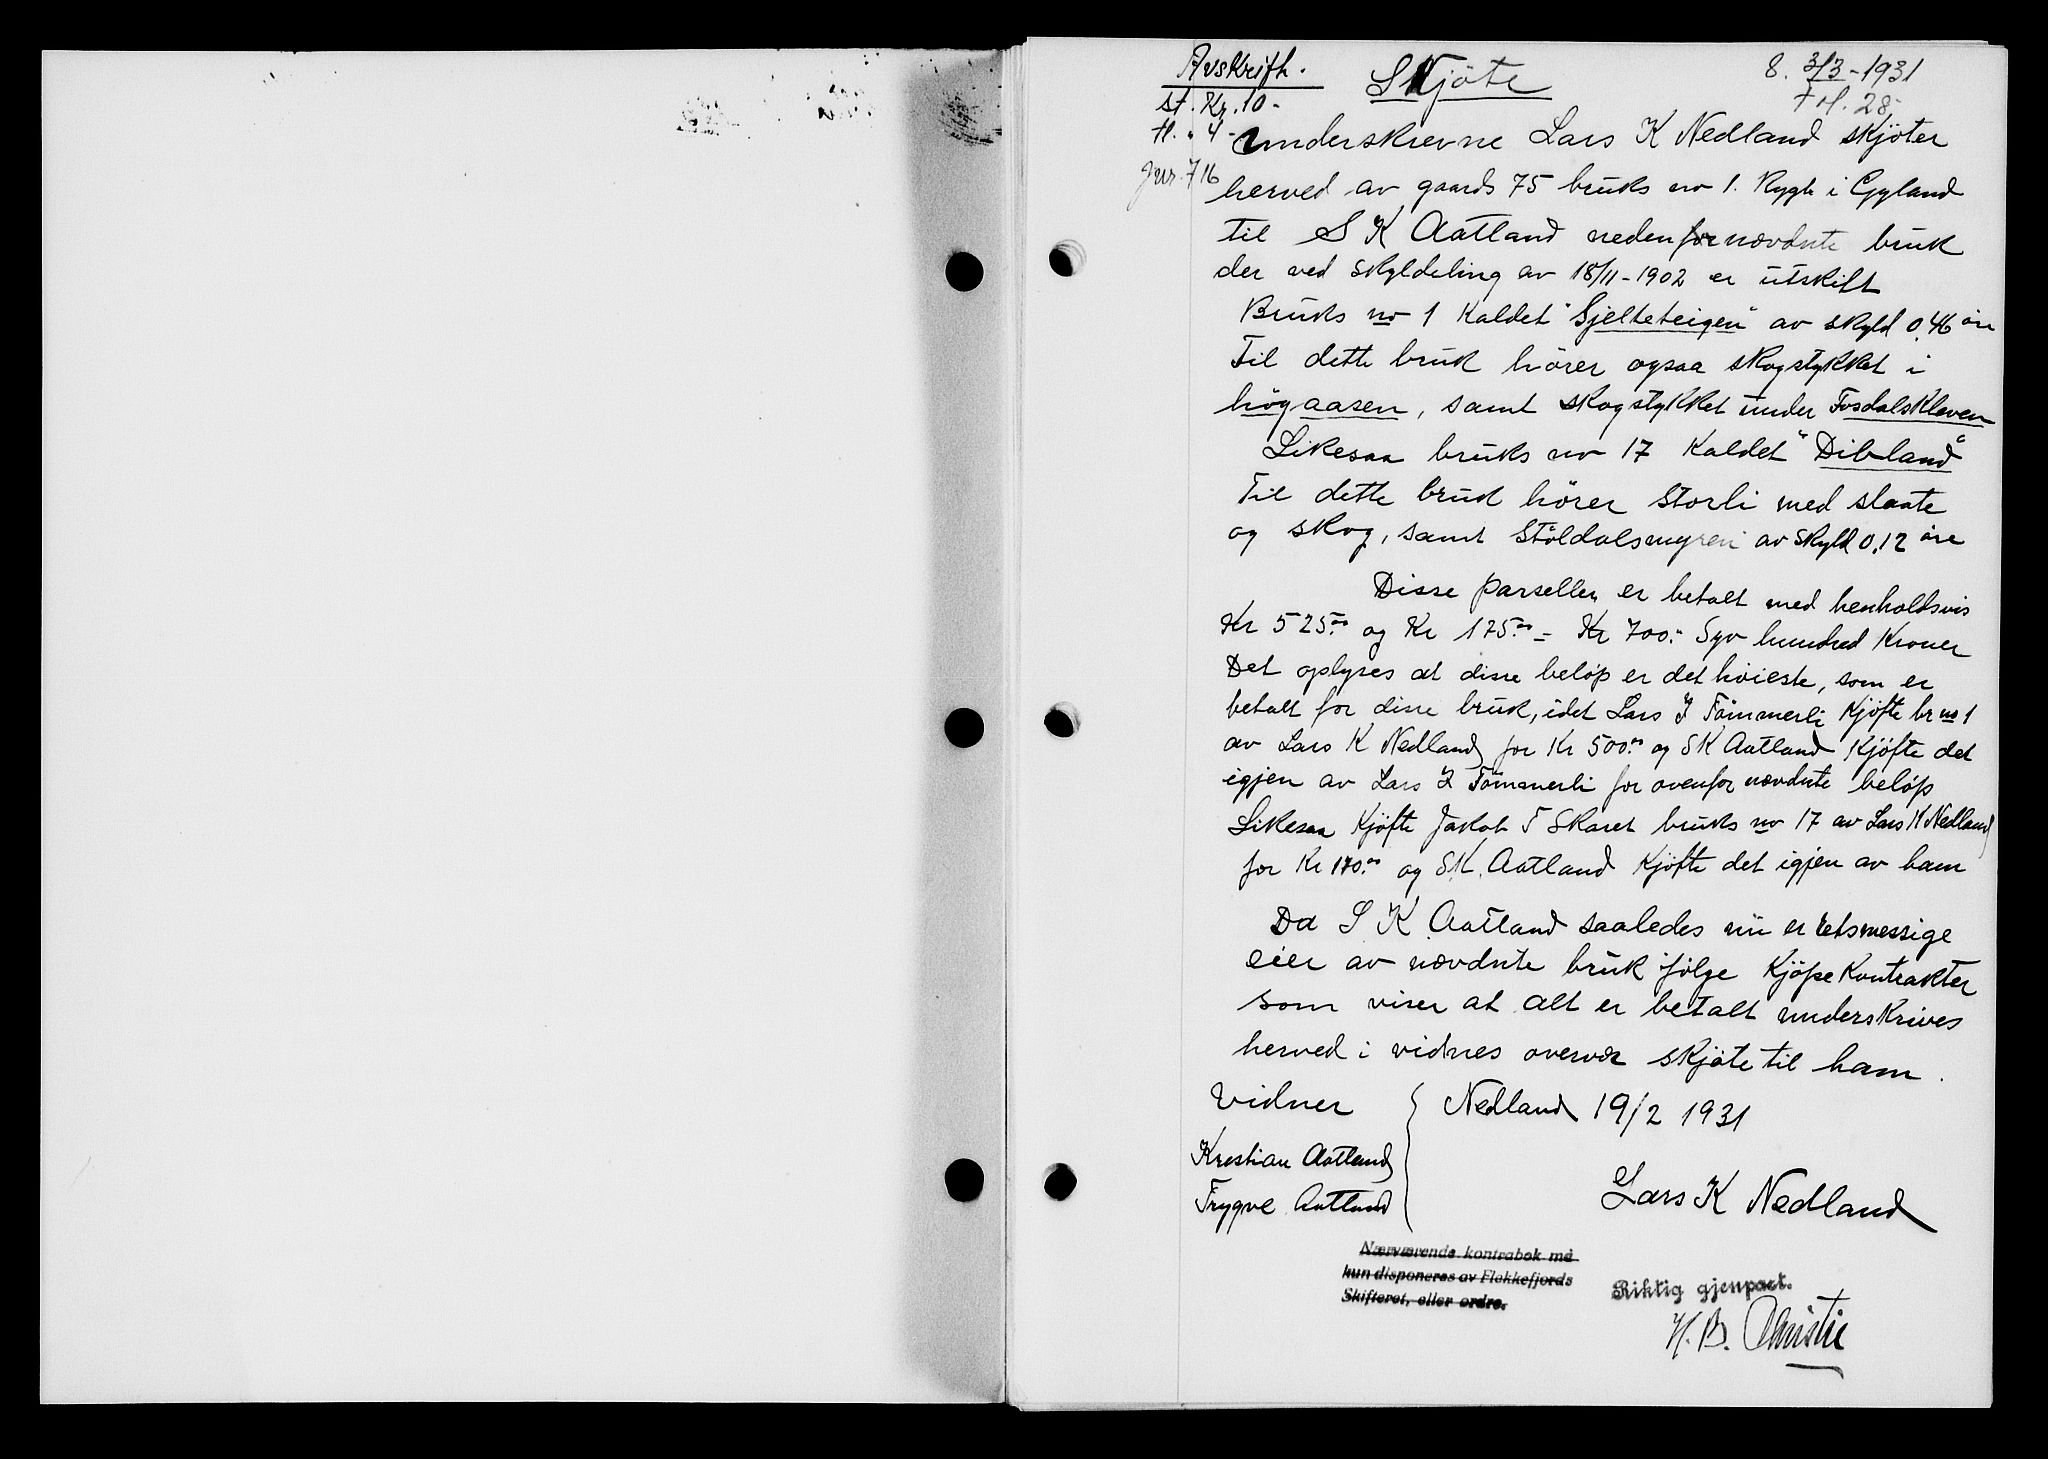 Avskrift.
Skjöte
8. 3/3-1931
st. Kr. 10-
tl. " 4-
Jnr. 716
Underskrevne Lars K Nedland skjöter
herved av gaards 75 bruks no 1. Rygh i Gyland
til S K Aatland nedenfor nævdnte bruk
der ved skyldeling av 18/11-1902 er utskilt
Bruks no 1 kaldet "Gjelteteigen" av skyld 0,46 öre
Til dette bruk hörer ogsaa skogstykket i
högaasen, samt skogstykket under Fosdalskleven
Likesaa bruks no 17 kaldet "Dibland"
Til dette bruk hörer Storli med slaate
og skog, samt Stöldalsmyren av skyld 0,12 öre
Disse parseller er betalt med henholdsvis
Kr 525.00 og Kr 175.00 = Kr 700.- Syv hundred Kroner
Det oplyses at disse belöp er det höieste, som er
betalt for disse bruk, idet Lars J Tömmerli kjöpte br no 1
av Lars K Nedland for Kr 500.00 og S K Aatland kjöpte det
igjen av Lars J Tömmerli for ovenfor nævdnte belöp
Likesaa kjöpte Jakob T Skaret bruks no 17 av Lars K Nedland
for Kr 170.00 og S.K. Aatland kjöpte det igjen av ham
Da S K Aatland saaledes nu er retsmessige
eier av nævdnte bruk ifölge kjöpekontrakter
som viser at alt er betalt underskrives
herved i vidnes overvær skjöte til ham.
Vidner
Nedland 19/2 1931
Krestian Aatland
Trygve Aatland
Lars K Nedland
Nærværende kontrabok må
kun disponeres av Flekkefjords
Skifteret, eller ordre.
Riktig gjenpart.
H. B. Christie